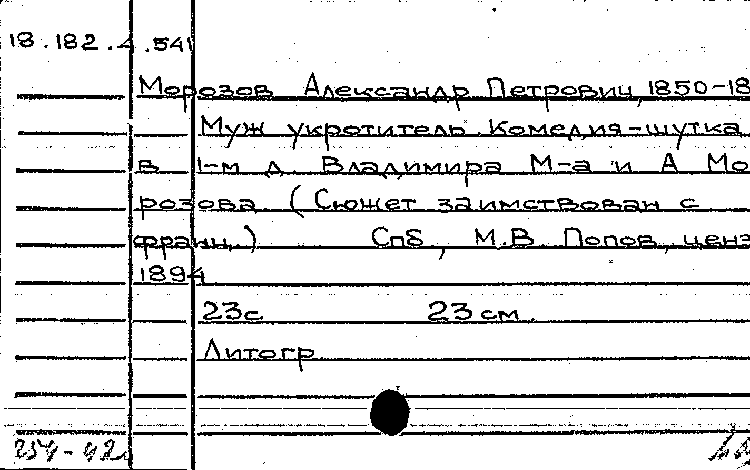 18.182.4.541
Морозов Александр Петрович, 1850-18
Муж укротитель. Комедия-шутка
в 1-м д. Владимира М-а и А Мо
розова (Сюжет заимствован с
франц.) Спб, М.В. Попов, ценз
1894
23с 23 см.
Литогр
254-42